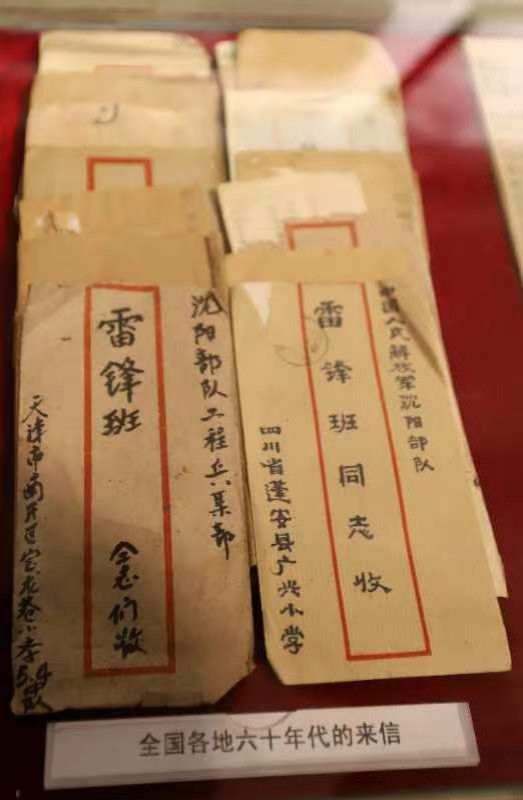 沈阳部队工程兵某部
雷锋班
仝志们收
天津市南开区宝龙巷小李
5.4
中国人民解放军沈阳部队
雷锋班同志收
四川省蓬安县广兴小学
全国各地六十年代的来信